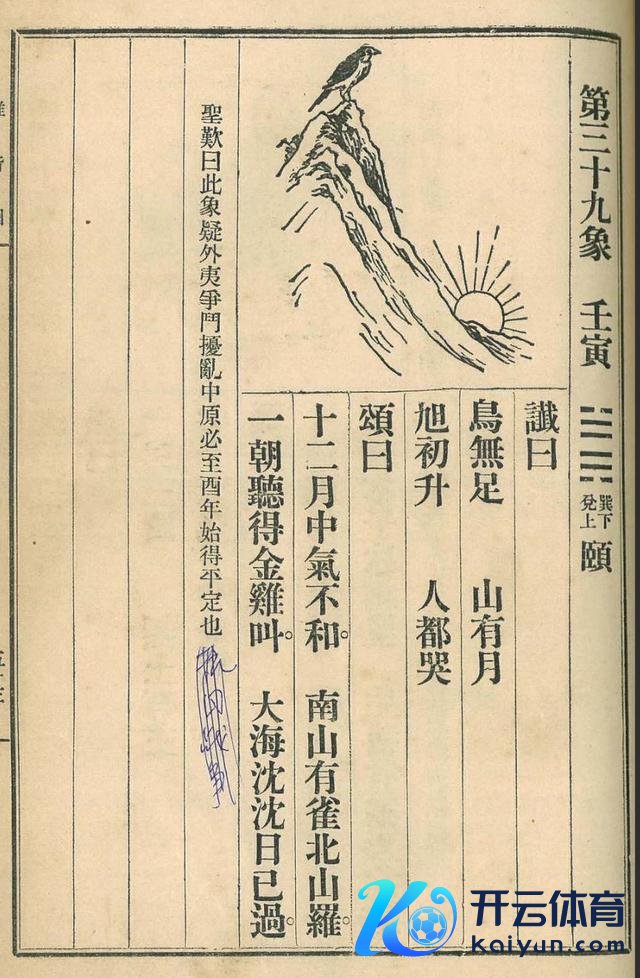 第三十九象 壬寅
巽下
兌上
頤
讖曰
鳥無足 山有月
旭初升 人都哭
頌曰
十二月中氣不和。 南山有雀北山羅。
一朝聽得金雞叫。 大海沈沈日已過。
聖歎曰此象疑外夷爭鬥擾亂中原必至酉年始得平定也
开云体育
kaiyun.com